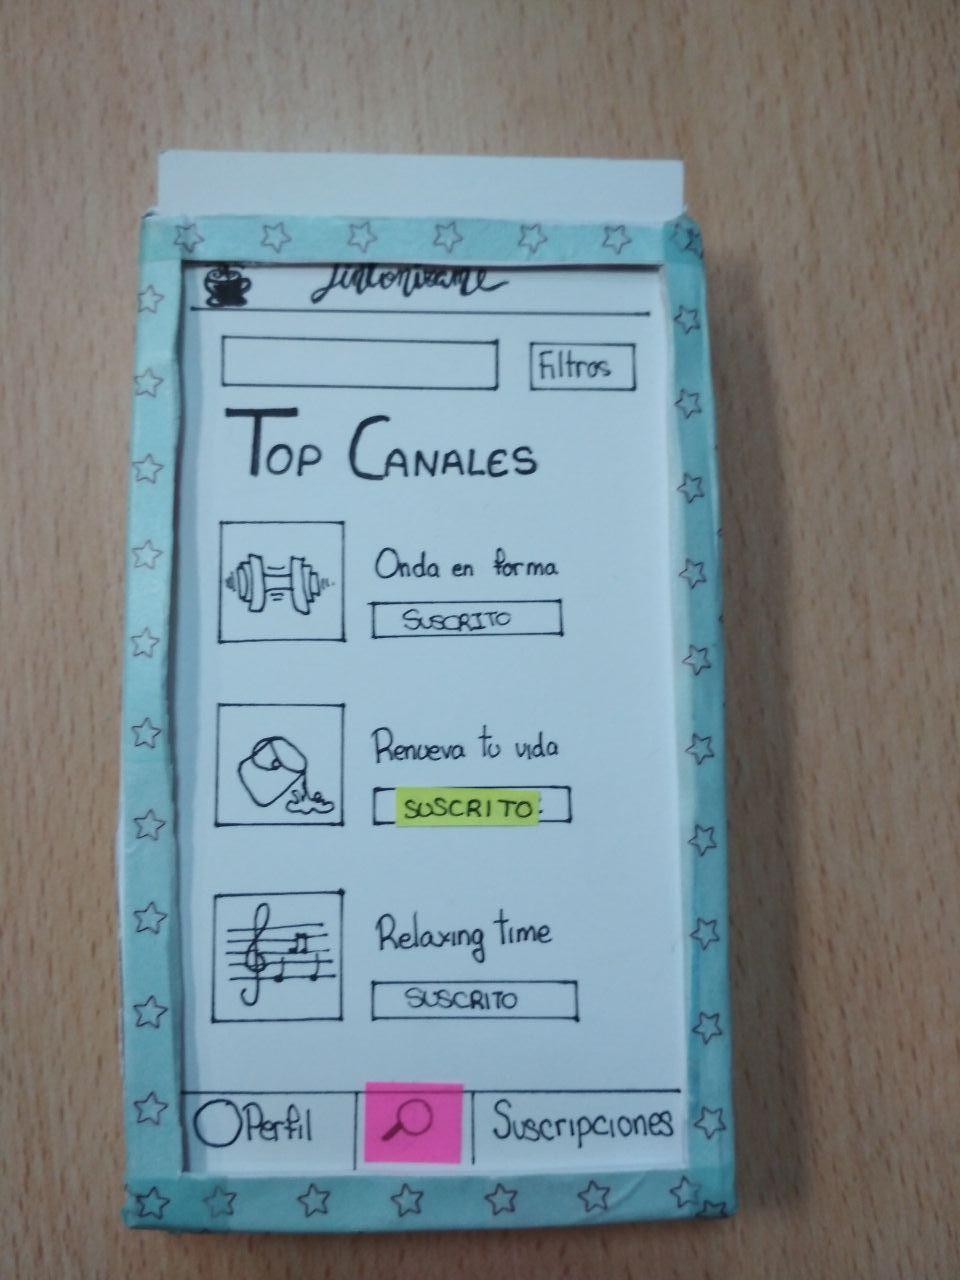 Sintonizame
Filtros
TOP CANALES
Onda en forma
SUSCRITO
Renueva tu vida
SUSCRITO
Relaxing time
SUSCRITO
Perfil
Suscripciones